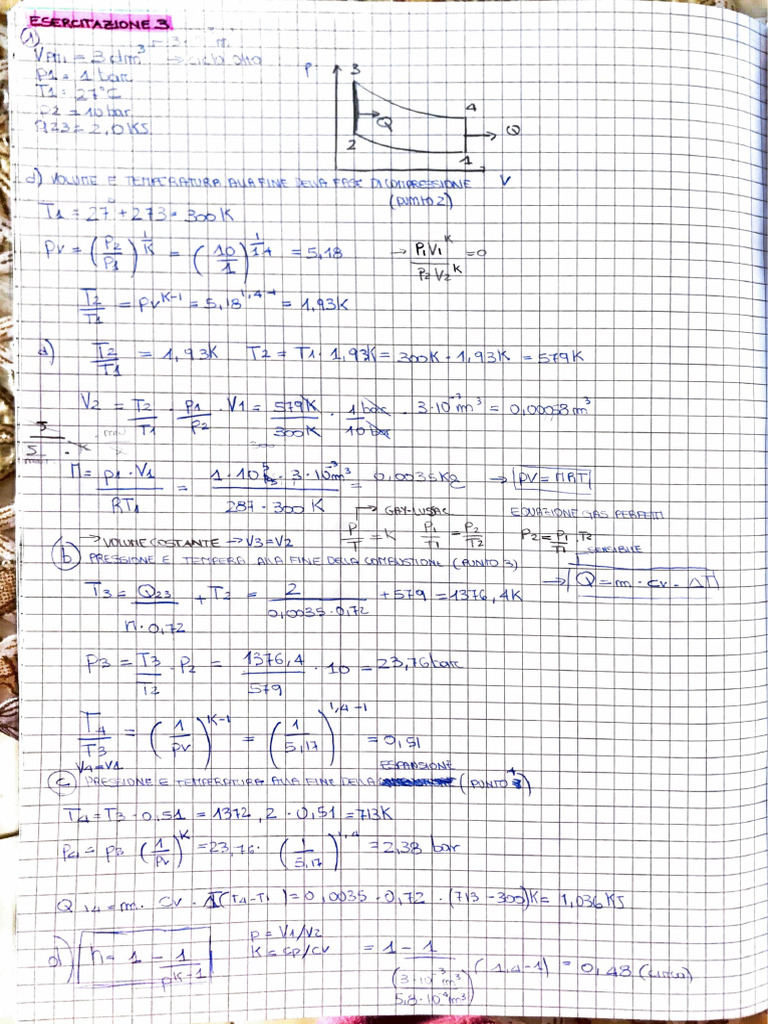 ESERCITAZIONE 3
1)
VPM1 = 3 dm³ → ciclo otto
P1 = 1 bar
T1 = 27°C
P2 = 10 bar
Q23 = 2,0 KJ
P 3 4 Q Q 2 1 V
a) VOLUME E TEMPERATURA ALLA FINE DELLA FASE DI COMPRESSIONE
(PUNTO 2)
T1 = 27° + 273 = 300K
ρv = (P2/P1)^(1/K) = (10/1)^(1/1,4) = 5,18 → P1V1^K / P2V2^K = 0
T2/T1 = ρv^(K-1) = 5,18^(1,4-1) = 1,93K
a) T2/T1 = 1,93K T2 = T1 · 1,93K = 300K · 1,93K = 579K
V2 = T2/T1 · P1/P2 · V1 = 579K/300K · 1bar/10bar · 3·10⁻³m³ = 0,00058m³
M = P1·V1/RT1 = 1·10⁵ · 3·10⁻³m³ / 287·300K = 0,0035Kg → PV = MRT
→ GAY-LUSAC EQUAZIONE GAS PERFETTI
→ VOLUME COSTANTE → V3 = V2 P/T = K P1/T1 = P2/T2 P2 = P1/T1 · T2
SENSIBILE
b) PRESSIONE E TEMPERA ALLA FINE DELLA COMBUSTIONE (PUNTO 3)
→ Q = m · cv · ΔT
T3 = Q23/n·0,72 + T2 = 2/0,0035·0,72 + 579 = 1376,4K
P3 = T3/T2 · P2 = 1376,4/579 · 10 = 23,76bar
T4/T3 = (1/ρv)^(K-1) = (1/5,17)^(1,4-1) = 0,51
V4 = V1 ESPANSIONE
c) PRESSIONE E TEMPERATURA ALLA FINE DELLA (PUNTO 4)
T4 = T3 · 0,51 = 1372,2 · 0,51 = 713K
P4 = P3 (1/ρv)^K = 23,76 · (1/5,17)^1,4 = 2,38 bar
Q14 = m · cv · (T4-T1) = 0,0035 · 0,72 · (713-300)K = 1,036KJ
d) η = 1 - 1/ρ^(K-1) ρ = V1/V2 K = cp/cv = 1 - 1/(3·10⁻³m³/5,8·10⁻⁴m³)^(1,4-1) = 0,48 (circa)